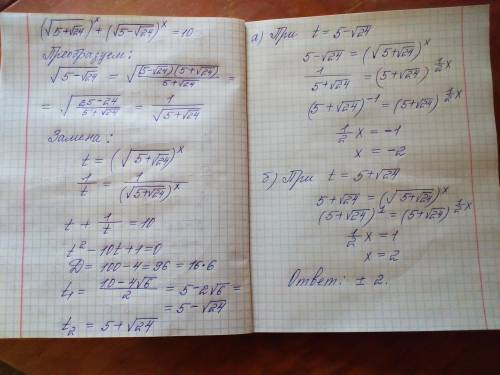 (√(5+√24))ˣ + (√(5-√24))ˣ = 10
Преобразуем:
√(5-√24) = √((5-√24)(5+√24)/(5+√24)) =
= √((25-24)/(5+√24)) = 1/√(5+√24)
Замена:
t = (√(5+√24))ˣ
1/t = 1/(√(5+√24))ˣ
t + 1/t = 10
t² - 10t + 1 = 0
D = 100 - 4 = 96 = 16·6
t₁ = (10 - 4√6)/2 = 5 - 2√6 =
= 5 - √24
t₂ = 5 + √24
а) При t = 5-√24
5-√24 = (√(5+√24))ˣ
1/(5+√24) = (5+√24)^(1/2 x)
(5+√24)⁻¹ = (5+√24)^(1/2 x)
1/2 x = -1
x = -2
б) При t = 5+√24
5+√24 = (√(5+√24))ˣ
(5+√24)¹ = (5+√24)^(1/2 x)
1/2 x = 1
x = 2
Ответ: ± 2.